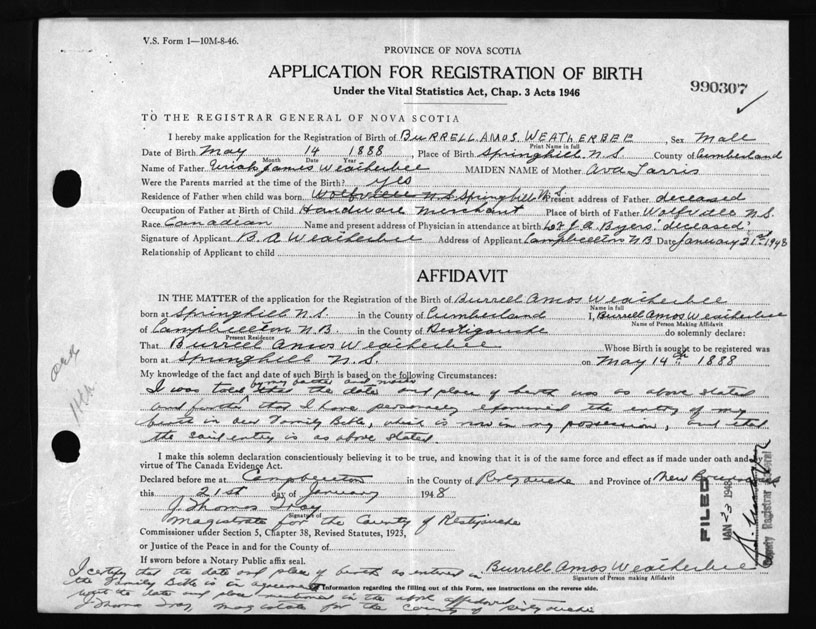 V.S. Form 1—10M-8-46.
PROVINCE OF NOVA SCOTIA
APPLICATION FOR REGISTRATION OF BIRTH
Under the Vital Statistics Act, Chap. 3 Acts 1946
990307
TO THE REGISTRAR GENERAL OF NOVA SCOTIA
I hereby make application for the Registration of Birth of BURRELL AMOS WEATHERBEE, Sex Male
Print Name in full
Date of Birth May 14 1888, Place of Birth Springhill N.S. County of Cumberland
Month Date Year
Name of Father Uriah James Weatherbee MAIDEN NAME of Mother Ava
Were the Parents married at the time of Birth? Yes
Residence of Father when child was born Wolfville N.S. Springhill N.S. Present address of Father deceased
Occupation of Father at Birth of Child Hardware Merchant Place of birth of Father Wolfville N.S.
Race Canadian Name and present address of Physician in attendance at birth J.A. Byers deceased
Signature of Applicant B. A Weatherbee Address of Applicant Campbellton N.B. Date January 21st 1948
Relationship of Applicant to child
AFFIDAVIT
IN THE MATTER of the application for the Registration of the Birth of Burrell Amos Weatherbee
Name in full
born at Springhill N.S. in the County of Cumberland I, Burrell Amos Weatherbee
Name of Person Making Affidavit
of Campbellton N.B. in the County of Restigouche do solemnly declare:
Present Residence
That Burrell Amos Weatherbee Whose Birth is sought to be registered was
born at Springhill N.S. on May 14th 1888
My knowledge of the fact and date of such Birth is based on the following Circumstances:
by my father and mother
I was told that the date and place of birth was as above stated
and further that I have personally examined the entry of my
birth in our Family Bible, which is now in my possession, and that
the said entry is as above stated.
I make this solemn declaration conscientiously believing it to be true, and knowing that it is of the same force and effect as if made under oath and by
virtue of The Canada Evidence Act.
Declared before me at Campbellton in the County of Restigouche and Province of New Brunswick
this 21st day of January 1948
J. Thomas Troy
Signature of
Magistrate for the County of Restigouche
Commissioner under Section 5, Chapter 38, Revised Statutes, 1923,
or Justice of the Peace in and for the County of
If sworn before a Notary Public affix seal.
Burrell Amos Weatherbee
Signature of Person making Affidavit
I certify that the date and place of birth as entered in
the Family Bible is in agreement
with the date and place mentioned in the above affidavit
J Thomas Troy, Magistrate for the County of Restigouche
Information regarding the filling out of this Form, see instructions on the reverse side.
FILED
JAN 23 1948
Deputy Registrar General